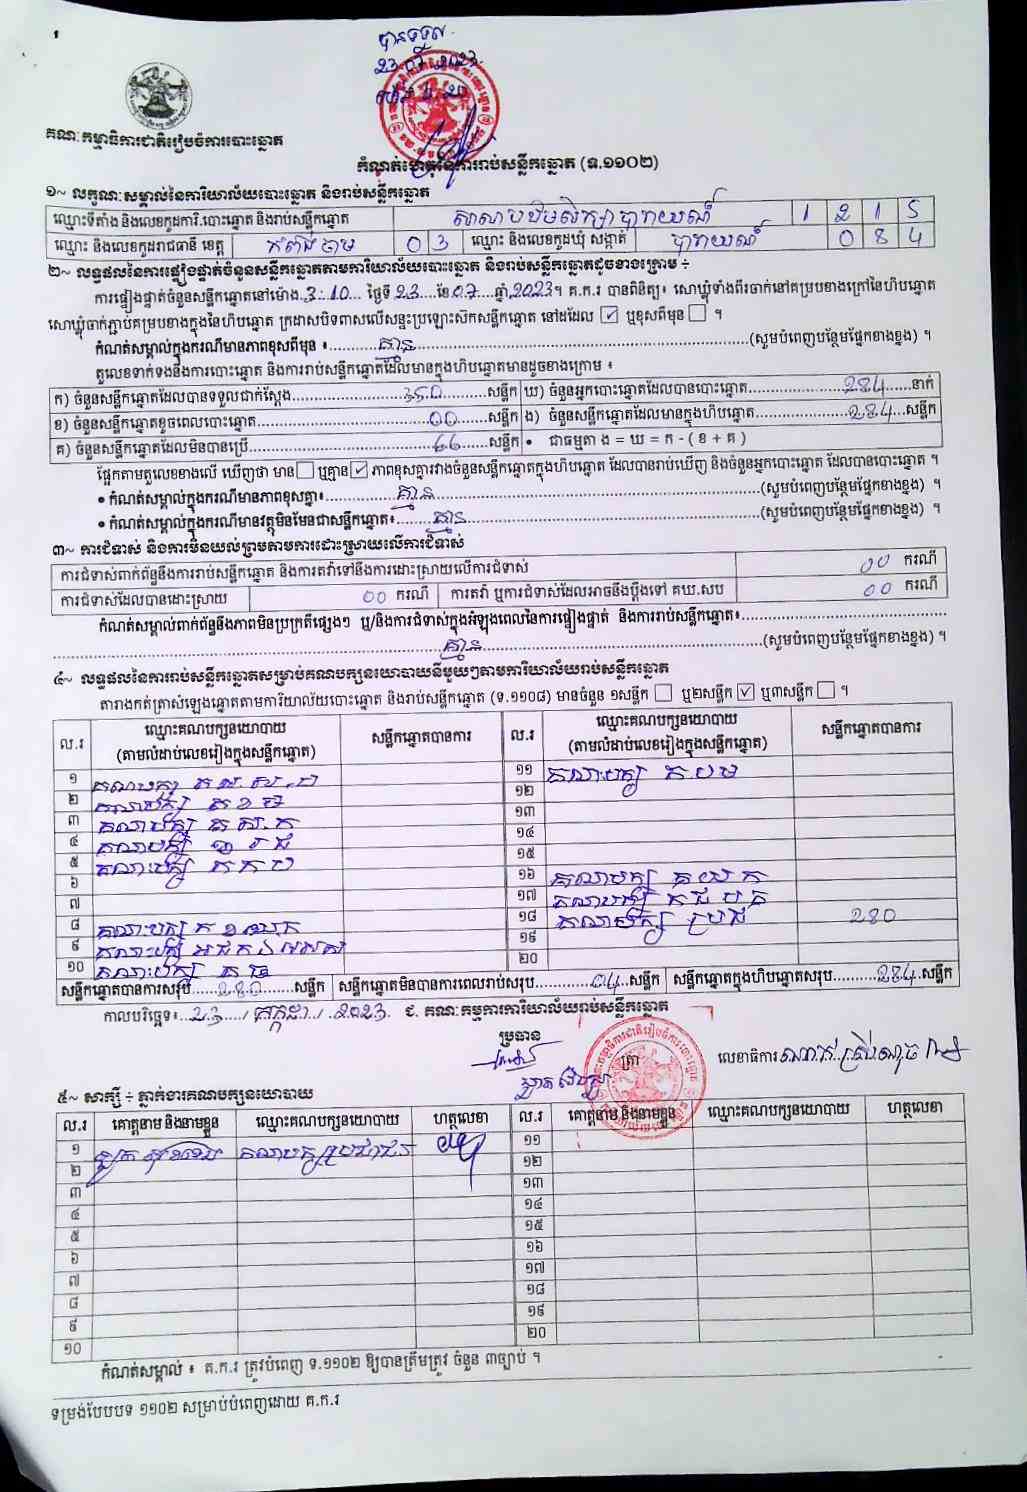 បានទទួល
23.07.2023
គណៈកម្មាធិការជាតិរៀបចំការបោះឆ្នោត
កំណត់ហេតុនៃការរាប់សន្លឹកឆ្នោត (ទ.១១០២)
១~ លក្ខណៈសម្គាល់នៃការិយាល័យបោះឆ្នោត និងរាប់សន្លឹកឆ្នោត
ឈ្មោះទីតាំង និងលេខកូដការិ.បោះឆ្នោត និងរាប់សន្លឹកឆ្នោត 1 2 1 5
ឈ្មោះ និងលេខកូដរាជធានី ខេត្ត កំពង់ចាម 0 3 ឈ្មោះ និងលេខកូដឃុំ សង្កាត់ បារាយណ៍ 0 8 4
២~ លទ្ធផលនៃការផ្ទៀងផ្ទាត់ចំនួនសន្លឹកឆ្នោតតាមការិយាល័យបោះឆ្នោត និងរាប់សន្លឹកឆ្នោតដូចខាងក្រោម ÷
ការផ្ទៀងផ្ទាត់ចំនួនសន្លឹកឆ្នោតនៅម៉ោង 3:10 ថ្ងៃទី 23 ខែ 07 ឆ្នាំ 2023។ គ.ក.រ បានពិនិត្យ៖ សោឃ្លុំទាំងពីរចាក់នៅគម្របខាងក្រៅនៃហិបឆ្នោត
សោឃ្លុំចាក់ភ្ជាប់គម្របខាងក្នុងនៃហិបឆ្នោត ក្រដាសបិទពាសលើសន្ទះប្រឡោះស៊ិកសន្លឹកឆ្នោត នៅដដែល ✓ ឬខុសពីមុន ។
កំណត់សម្គាល់ក្នុងករណីមានភាពខុសពីមុន ៖ គ្មាន (សូមបំពេញបន្ថែមផ្នែកខាងខ្នង) ។
តួលេខទាក់ទងនឹងការបោះឆ្នោត និងការរាប់សន្លឹកឆ្នោតដែលមានក្នុងហិបឆ្នោតមានដូចខាងក្រោម ៖
ក) ចំនួនសន្លឹកឆ្នោតដែលបានទទួលជាក់ស្តែង 350 សន្លឹក ឃ) ចំនួនអ្នកបោះឆ្នោតដែលបានបោះឆ្នោត 284 នាក់
ខ) ចំនួនសន្លឹកឆ្នោតខូចពេលបោះឆ្នោត 00 សន្លឹក ង) ចំនួនសន្លឹកឆ្នោតដែលមានក្នុងហិបឆ្នោត 284 សន្លឹក
គ) ចំនួនសន្លឹកឆ្នោតដែលមិនបានប្រើ 66 សន្លឹក • ជាធម្មតា ង = ឃ = ក - ( ខ + គ )
ផ្អែកតាមតួលេខខាងលើ ឃើញថា មាន ឬគ្មាន ✓ ភាពខុសគ្នារវាងចំនួនសន្លឹកឆ្នោតក្នុងហិបឆ្នោត ដែលបានរាប់ឃើញ និងចំនួនអ្នកបោះឆ្នោត ដែលបានបោះឆ្នោត ។
• កំណត់សម្គាល់ក្នុងករណីមានភាពខុសគ្នា៖ គ្មាន (សូមបំពេញបន្ថែមផ្នែកខាងខ្នង) ។
• កំណត់សម្គាល់ក្នុងករណីមានវត្ថុមិនមែនជាសន្លឹកឆ្នោត៖ គ្មាន (សូមបំពេញបន្ថែមផ្នែកខាងខ្នង) ។
៣~ ការជំទាស់ និងការមិនយល់ព្រមតាមការដោះស្រាយលើការជំទាស់
ការជំទាស់ពាក់ព័ន្ធនឹងការរាប់សន្លឹកឆ្នោត និងការតវ៉ាទៅនឹងការដោះស្រាយលើការជំទាស់ 00 ករណី
ការជំទាស់ដែលបានដោះស្រាយ 00 ករណី ការតវ៉ា ឬការជំទាស់ដែលអាចនឹងប្តឹងទៅ គឃ.សប 00 ករណី
កំណត់សម្គាល់ពាក់ព័ន្ធនឹងភាពមិនប្រក្រតីផ្សេងៗ ឬ/និងការជំទាស់ក្នុងអំឡុងពេលនៃការផ្ទៀងផ្ទាត់ និងការរាប់សន្លឹកឆ្នោត៖
គ្មាន (សូមបំពេញបន្ថែមផ្នែកខាងខ្នង) ។
៤~ លទ្ធផលនៃការរាប់សន្លឹកឆ្នោតសម្រាប់គណបក្សនយោបាយនីមួយៗតាមការិយាល័យរាប់សន្លឹកឆ្នោត
តារាងកត់ត្រាសំឡេងឆ្នោតតាមការិយាល័យបោះឆ្នោត និងរាប់សន្លឹកឆ្នោត (ទ.១១០៨) មានចំនួន ១សន្លឹក ឬ២សន្លឹក ✓ ឬ៣សន្លឹក ។
ល.រ ឈ្មោះគណបក្សនយោបាយ (តាមលំដាប់លេខរៀងក្នុងសន្លឹកឆ្នោត) សន្លឹកឆ្នោតបានការ ល.រ ឈ្មោះគណបក្សនយោបាយ (តាមលំដាប់លេខរៀងក្នុងសន្លឹកឆ្នោត) សន្លឹកឆ្នោតបានការ
១ គណបក្ស ១១ គណៈបក្ស
២ គណបក្ស ១២
៣ គណបក្ស ១៣
៤ គណបក្ស ១៤
៥ គណៈបក្ស ១៥
៦ ១៦ គណបក្ស
៧ ១៧ គណបក្ស
៨ គណៈបក្ស ១៨ គណបក្ស ប្រជា 280
៩ គណៈបក្ស ១៩
១០ គណៈបក្ស ២០
សន្លឹកឆ្នោតបានការសរុប 280 សន្លឹក សន្លឹកឆ្នោតមិនបានការពេលរាប់សរុប 04 សន្លឹក សន្លឹកឆ្នោតក្នុងហិបឆ្នោតសរុប 284 សន្លឹក
កាលបរិច្ឆេទ៖ 23 / កក្កដា / 2023 ជ. គណៈកម្មការការិយាល័យរាប់សន្លឹកឆ្នោត
ប្រធាន ត្រា លេខាធិការ
៥~ សាក្សី ÷ ភ្នាក់ងារគណបក្សនយោបាយ
ល.រ គោត្តនាម និងនាមខ្លួន ឈ្មោះគណបក្សនយោបាយ ហត្ថលេខា ល.រ គោត្តនាម និងនាមខ្លួន ឈ្មោះគណបក្សនយោបាយ ហត្ថលេខា
១ គណបក្សប្រជាជន ១១
២ ១២
៣ ១៣
៤ ១៤
៥ ១៥
៦ ១៦
៧ ១៧
៨ ១៨
៩ ១៩
១០ ២០
កំណត់សម្គាល់ ៖ គ.ក.រ ត្រូវបំពេញ ទ.១១០២ ឱ្យបានត្រឹមត្រូវ ចំនួន ៣ច្បាប់ ។
ទម្រង់បែបបទ ១១០២ សម្រាប់បំពេញដោយ គ.ក.រ